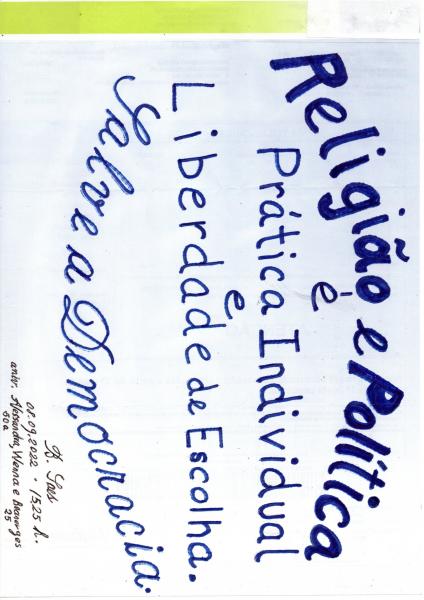 Religião e Política
é
Prática Individual
e
Liberdade de Escolha.
Salve a Democracia.
01.09.2022 - 15:25 h.
aniv. Alessandra,
50a
25